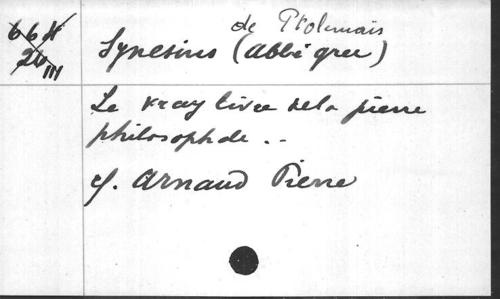 de Ptolemais
664
26
III
Synesius (abbé grec)
Le vray livre de la pierre
philosophale ..
cf. Arnaud Pierre